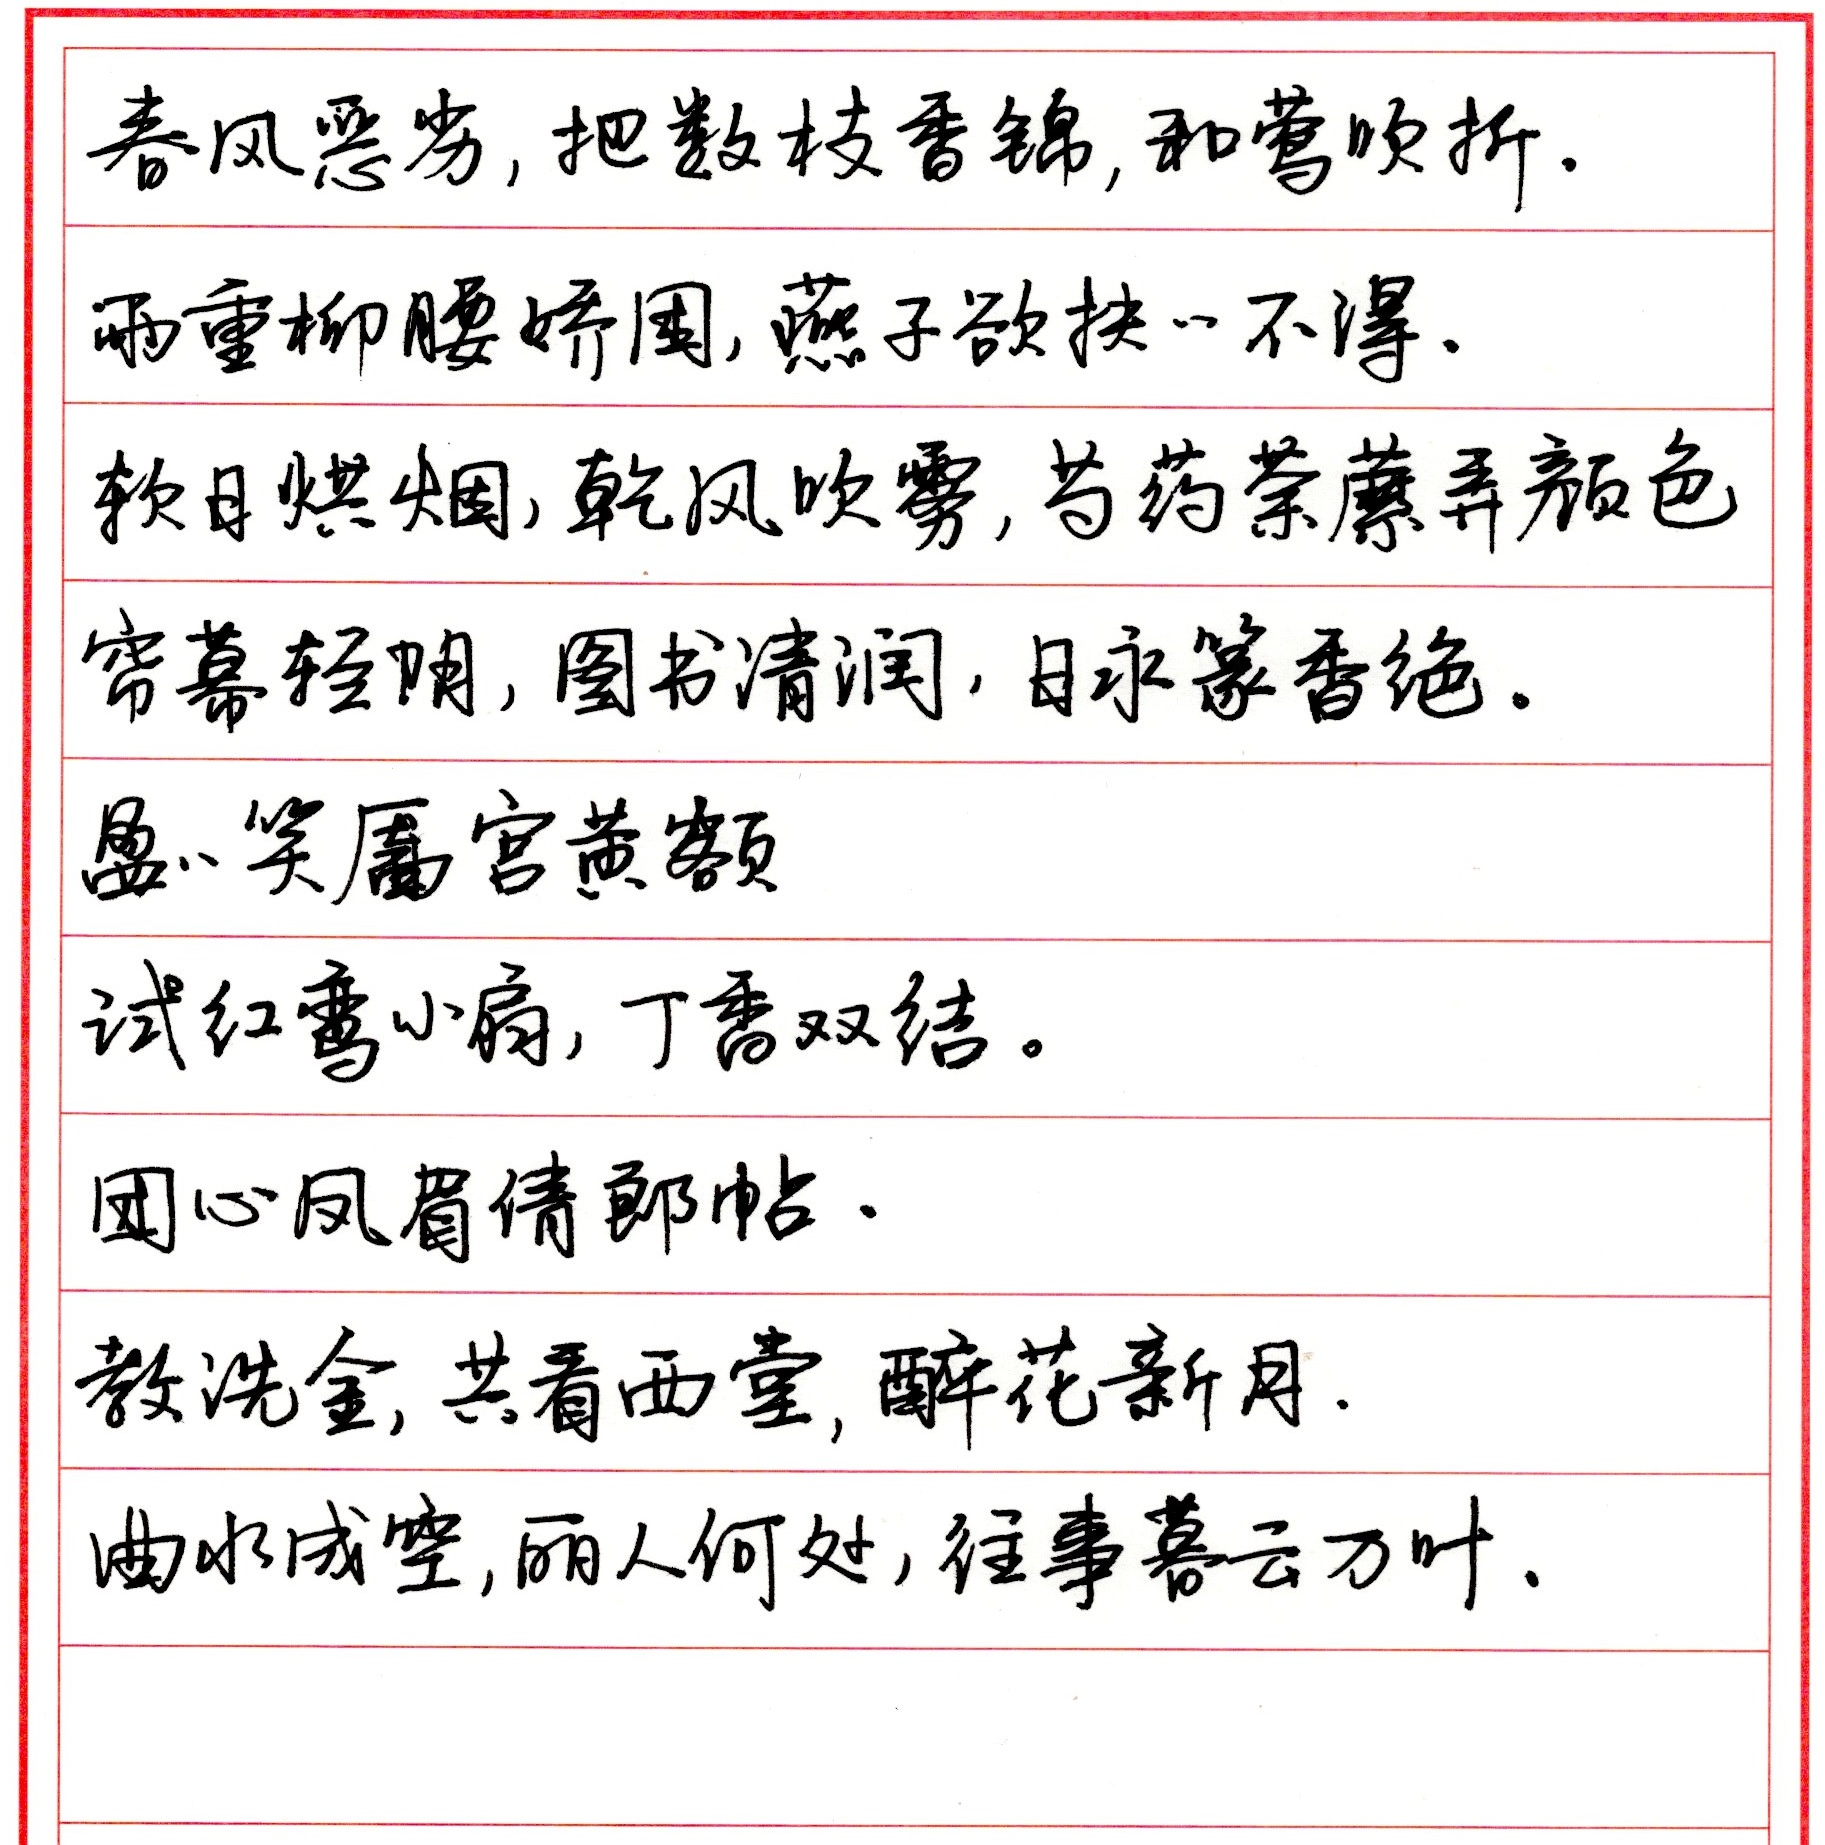 春风恶劣，把数枝香锦，和莺吹折.
雨重柳腰娇困，燕子欲扶〃不得.
软日烘烟，乾风吹雾，芍药荼蘼弄颜色
帘幕轻明，图书清润，日永篆香绝。
盈〃笑靥宫黄额
试红鸾小扇，丁香双结。
团心凤眉倩郎帖.
教洗金，共看西堂，醉花新月.
曲水成空，丽人何处，往事暮云万叶.